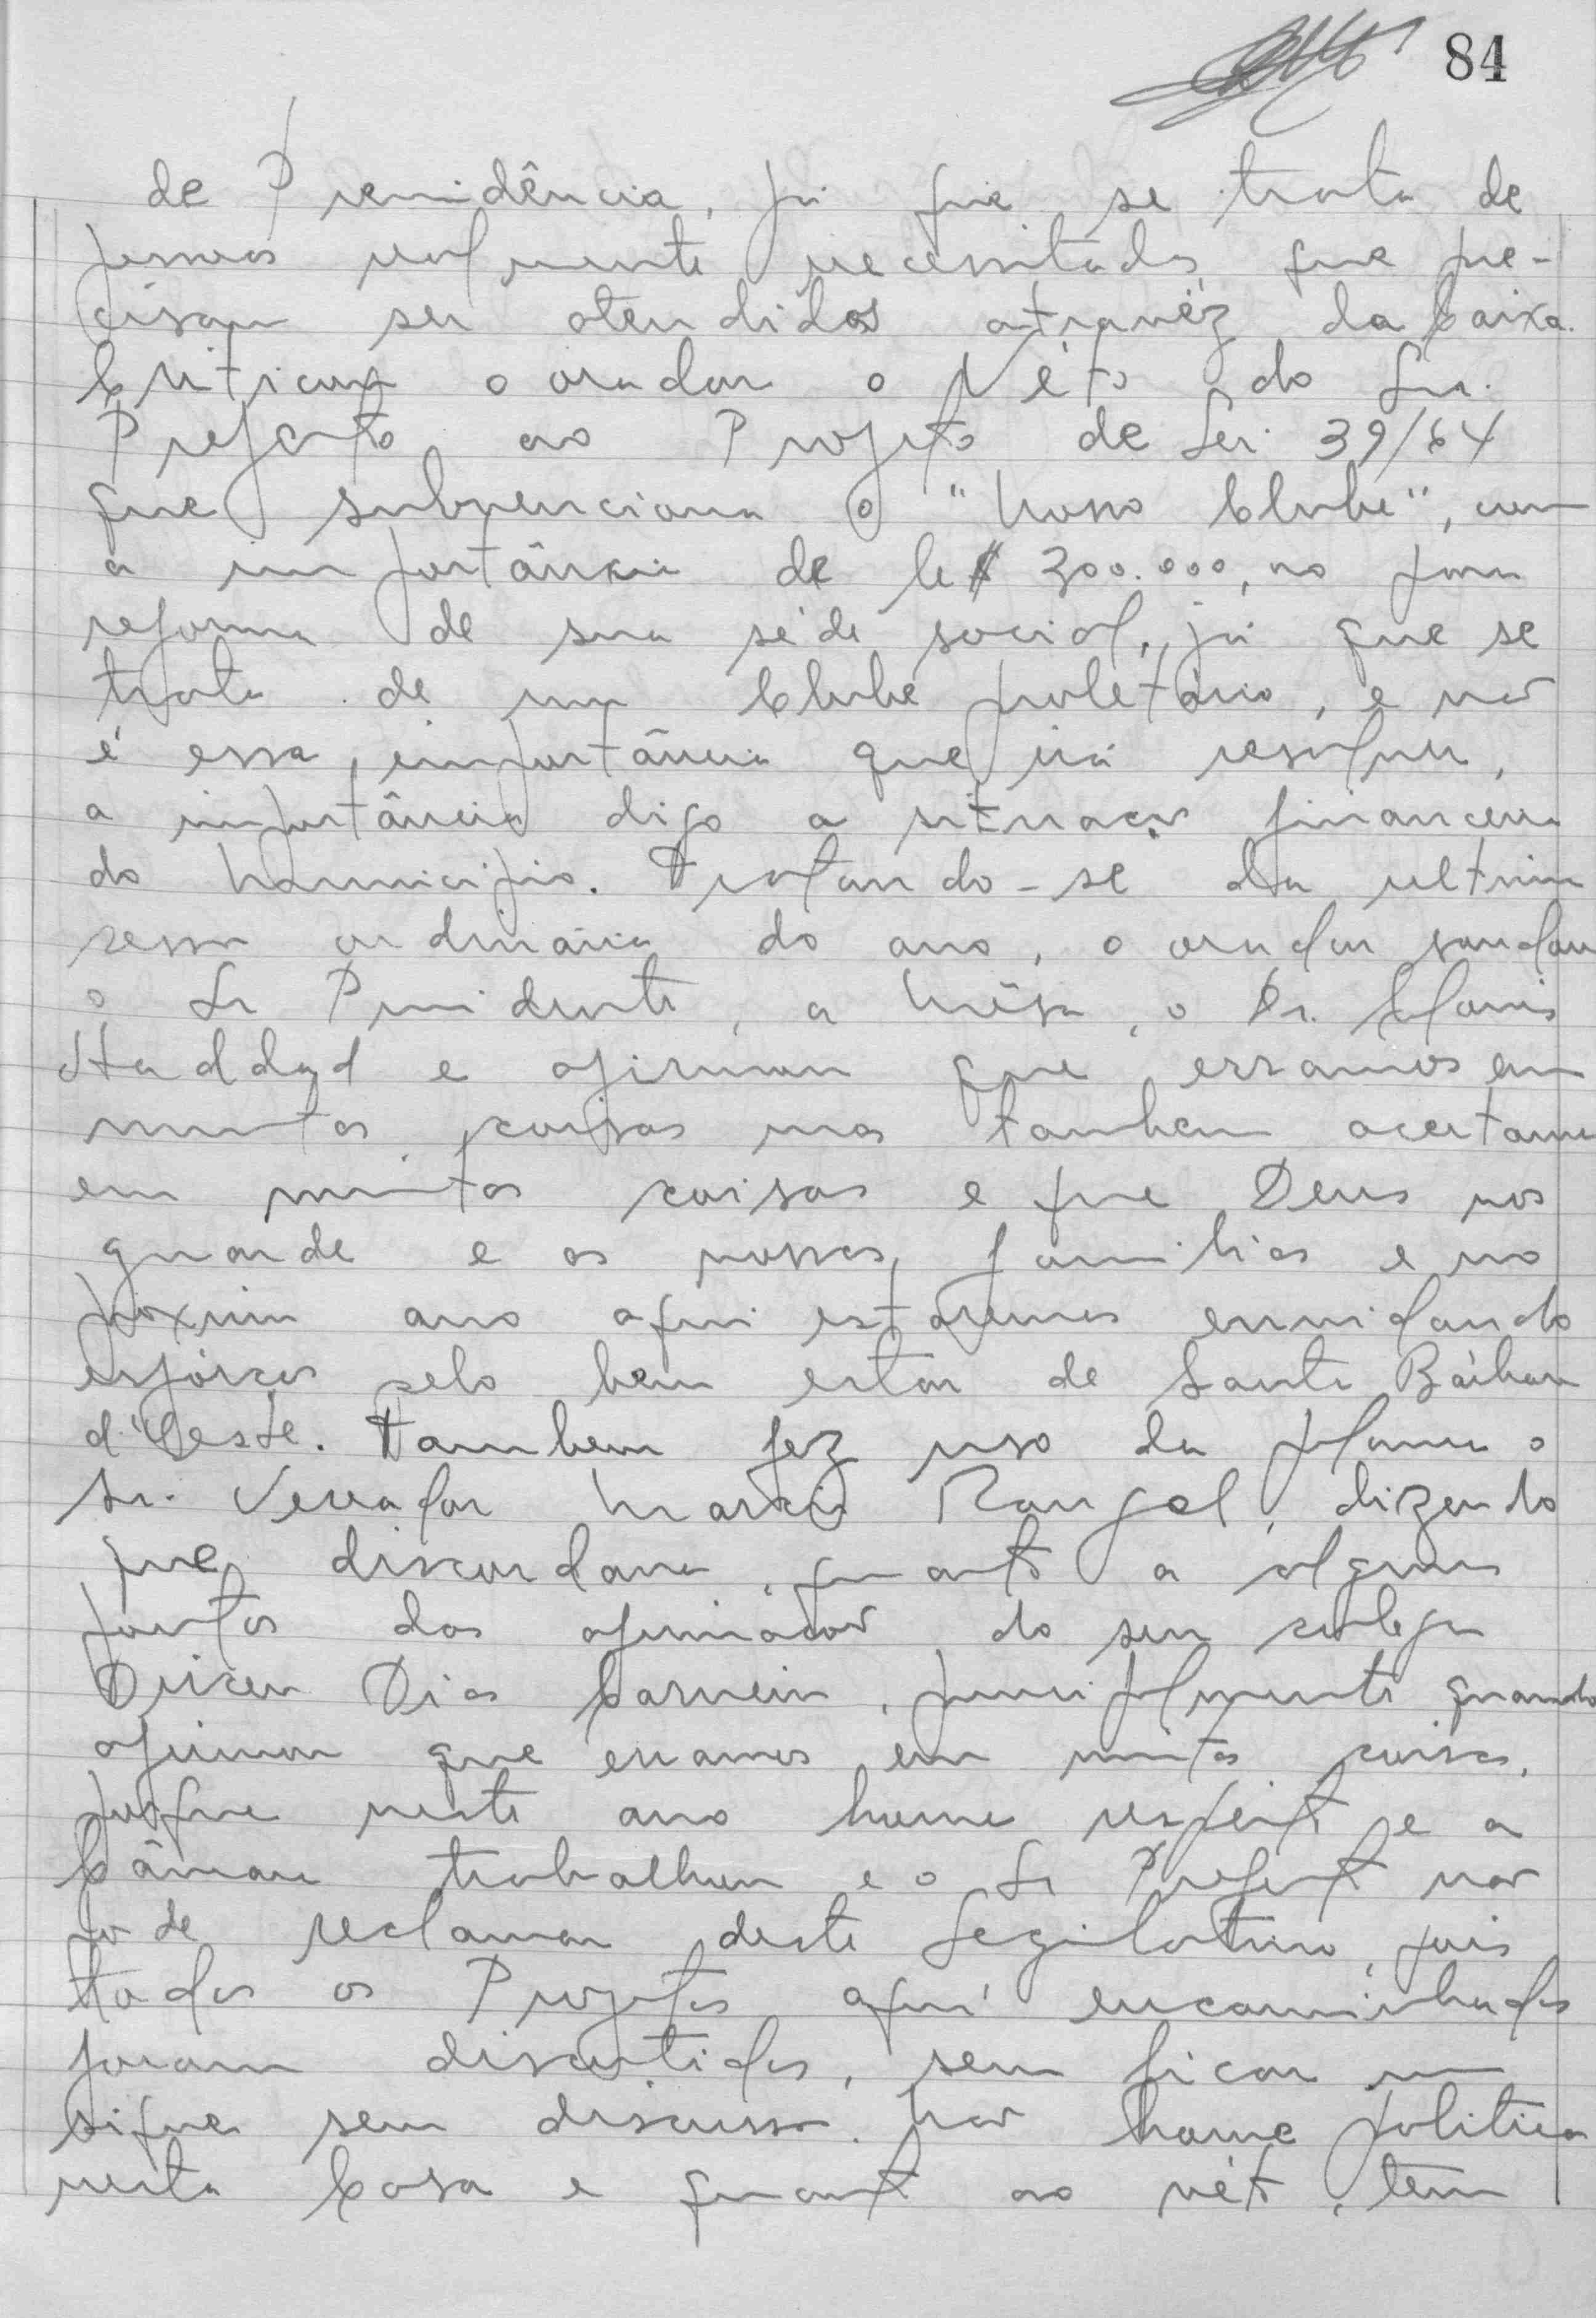 84
de Previdência, já que se trata de
pessoas realmente necessitadas que pre-
cisam ser atendidos atravéz da Caixa.
Criticou o orador o Véto do Snr.
Prefeito ao Projeto de Lei 39/64
que subvenciona o "Nosso Clube", com
a importância de Cr$ 300.000,00 para
reforma de sua séde social, já que se
trata de um Clube proletário, e não
é essa importância que irá resolver,
a importância digo a situação financeira
do Município. Tratando-se da ultima
sessão ordinária do ano, o orador saudou
o Sr Presidente, a Mêsa, o Dr.
Haddad e afirmou que erramos em
muitas coisas mas tambem acertamos
em muitas coisas e que Deus nos
guarde e as nossas familias e no
próximo ano aqui estaremos envidando
esforços pelo bem estar de Santa Bárbara
d'Oeste. Tambem fez uso da palavra o
Sr. Vereador Marcio Rangel, dizendo
que discordava quanto a alguns
pontos das afirmações do seu colega
Dirceu Dias Carneiro, principalmente quando
afirmou que erramos em muitas coisas,
porque neste ano houve respeito e a
Câmara trabalhou e o Sr Prefeito não
pode reclamar deste Legislativo, pois
todos os Projetos aqui encaminhados
foram discutidos, sem ficar um
siquer sem discussão. Não houve politica
nesta Casa e quanto ao véto, tem